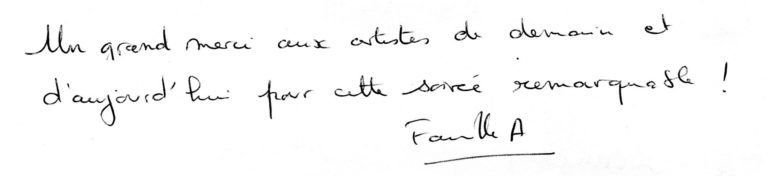 Un grand merci aux artistes de demain et
d'aujourd'hui pour cette soirée remarquable !
Famille A